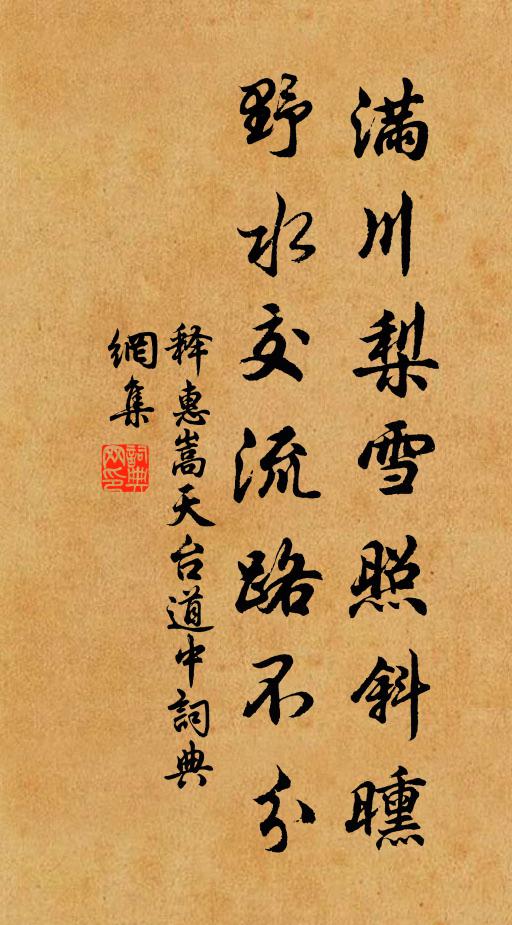 滿川梨雪照斜曛
野水交流路不分
释惠嵩天台道中詞典
網集
詞典網印